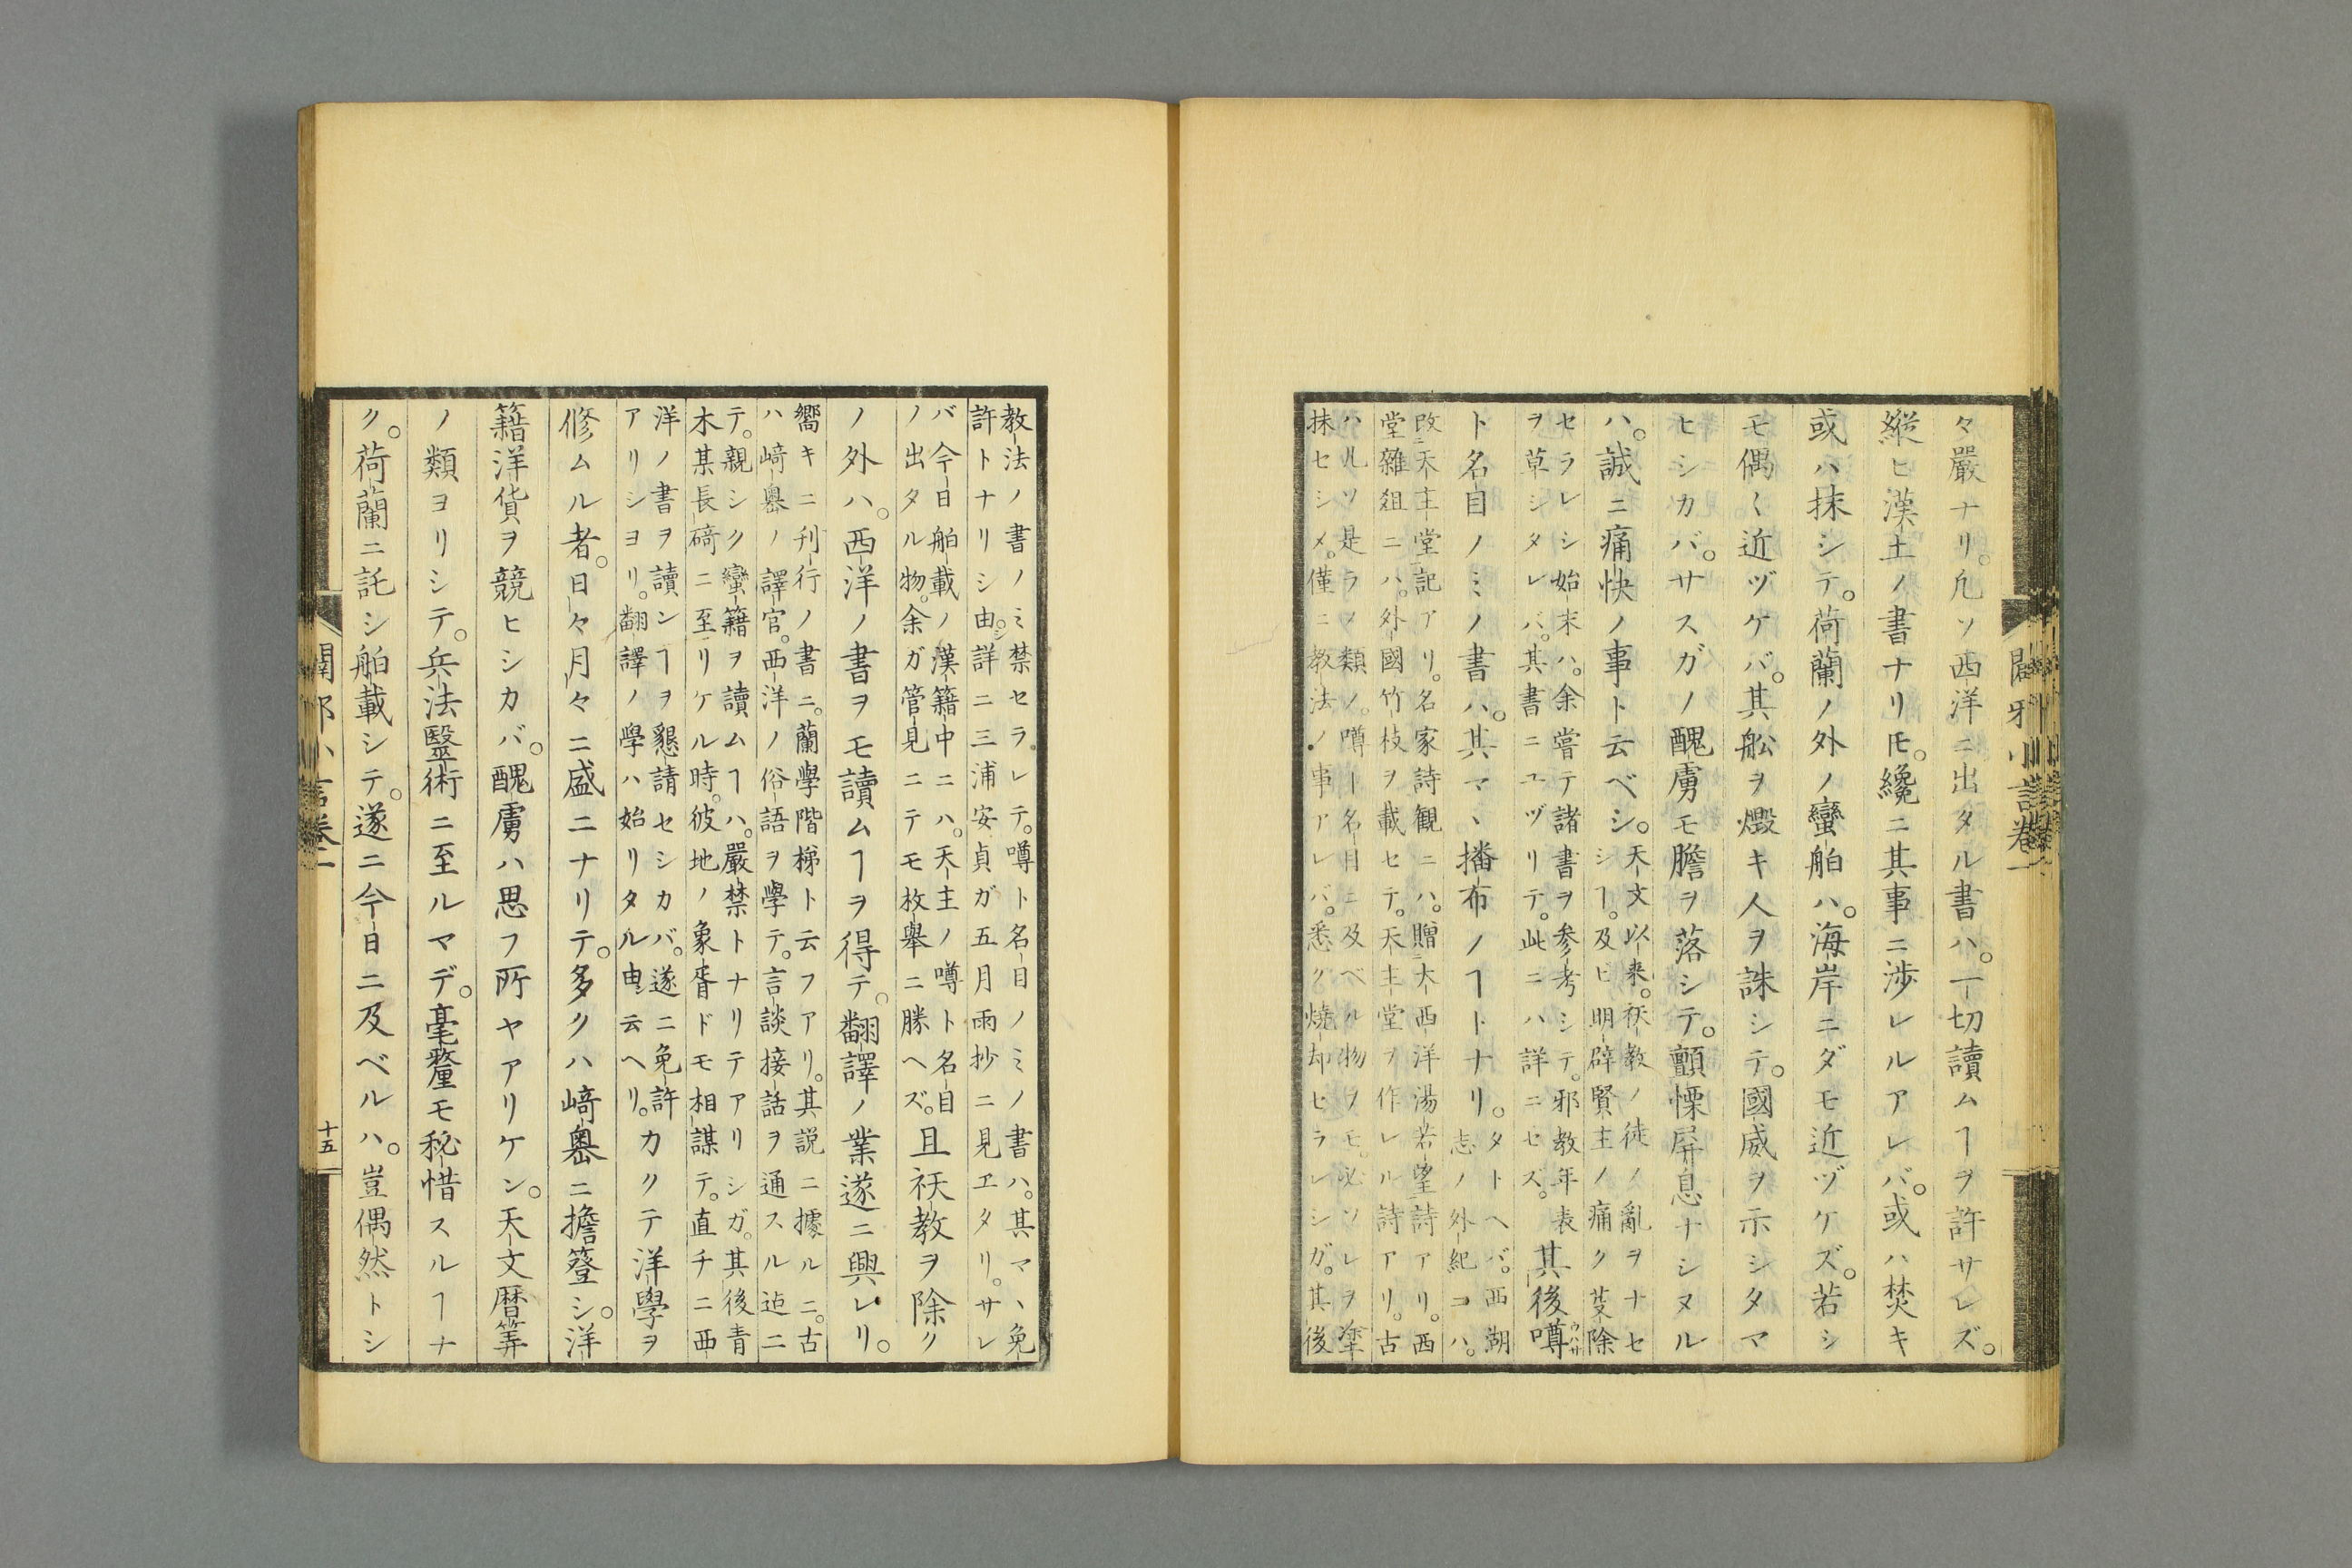 々嚴ナリ。凡ソ西洋ニ出タル書ハ。一切讀ムヿヲ許サレズ。
縱ヒ漢土ノ書ナリ𪜈。纔ニ其事ニ渉レルアレバ。或ハ焚キ
或ハ抹シテ。荷蘭ノ外ノ蠻舶ハ。海岸ニダモ近ヅケズ。若シ
モ偶〻近ヅケバ。其舩ヲ燬キ人ヲ誅シテ。國威ヲ示シタマ
ヒシカバ。サスガノ醜虜モ膽ヲ落シテ。顫慄屏息ナシヌル
ハ。誠ニ痛快ノ事ト云ベシ。
天文以来。祅教ノ徒ノ亂ヲナセ
シヿ。及ビ明辟賢主ノ痛ク芟除
セラレシ始末ハ。余嘗テ諸書ヲ参考シテ。邪教年表
ヲ草シタレバ。其書ニユヅリテ。此ニハ詳ニセズ。
其後噂ウハサ
ト名目ノミノ書ハ。其マヽ播布ノヿトナリ。
タトヘバ。西湖
志ノ外紀コハ。
改天主堂記アリ。名家詩観ニハ。贈大西洋湯若望詩アリ。西
堂雜俎ニハ。外國竹枝ヲ載セテ。天主堂ヲ作レル詩アリ。古
ハ凡ソ是ラノ類ノ。噂ー名目ニ及ベル物ヲモ。必ソレヲ塗
抹セシメ。僅ニ教法ノ事アレバ。悉ク燒却セラレシガ。其後
闢邪小言卷二
教法ノ書ノミ禁セラレテ。噂ト名目ノミノ書ハ。其マヽ免
許トナリシ由。詳ニ三浦安貞ガ五月雨抄ニ見エタリ。サレ
バ今日舶載ノ漢籍中ニハ。天主ノ噂ト名目
ノ出タル物。余ガ管見ニテモ枚舉ニ勝ヘズ。
且祅教ヲ除ク
ノ外ハ。西洋ノ書ヲモ讀ムヿヲ得テ。翻譯ノ業遂ニ興レリ。
嚮キニ刊行ノ書ニ。蘭學階梯ト云フアリ。其説ニ據ルニ。古
ハ﨑嶴ノ譯官。西洋ノ俗語ヲ學テ。言談接話ヲ通スル迠ニ
テ。親シク蠻籍ヲ讀ムヿハ。嚴禁トナリテアリシガ。其後青
木某長碕ニ至リケル時。彼地ノ象胥ドモ相謀テ。直チニ西
洋ノ書ヲ讀ンヿヲ懇請セシカバ。遂ニ免許
アリシヨリ。翻譯ノ學ハ始リタル由云ヘリ。
カクテ洋學ヲ
修ムル者。日々月々ニ盛ニナリテ。多クハ﨑嶴ニ擔簦シ。洋
籍洋貨ヲ競ヒシカバ。醜虜ハ思フ所ヤアリケン。天文暦筭
ノ類ヨリシテ。兵法毉術ニ至ルマデ。毫釐モ秘惜スルヿナ
ク。荷蘭ニ託シ舶載シテ。遂ニ今日ニ及ベルハ。豈偶然トシ
闢邪小言卷二
十五